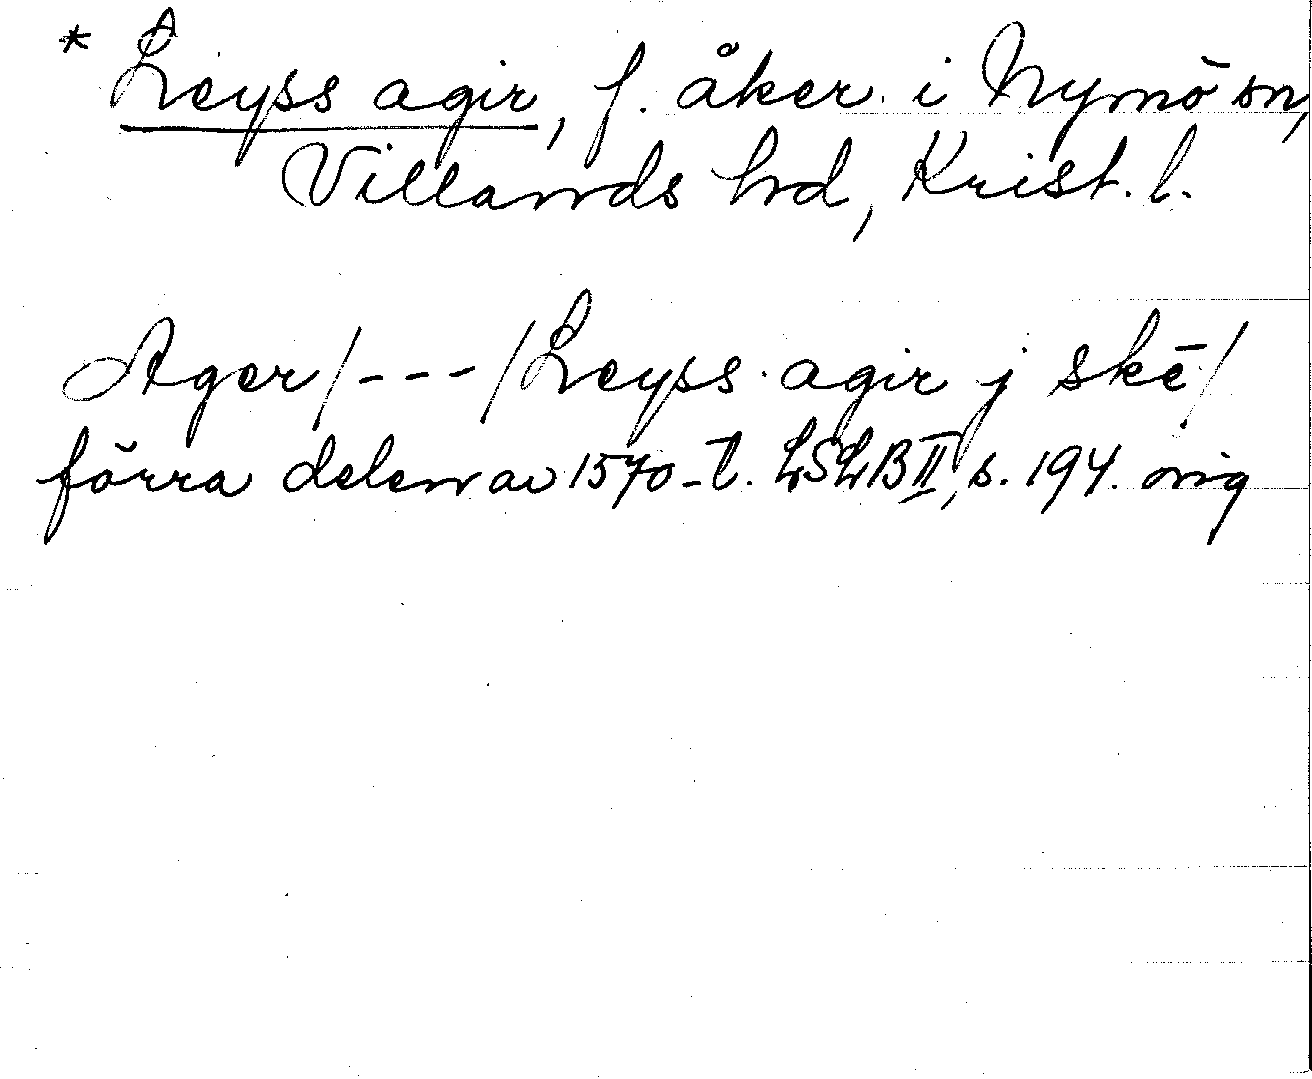 * Leyss agir, f. åker i Nymö sn,
Villands hrd, Krist. l.
Ager/---/Leyss agir j skē/
förra delen av 1570-t. LSLB II, s. 194. orig